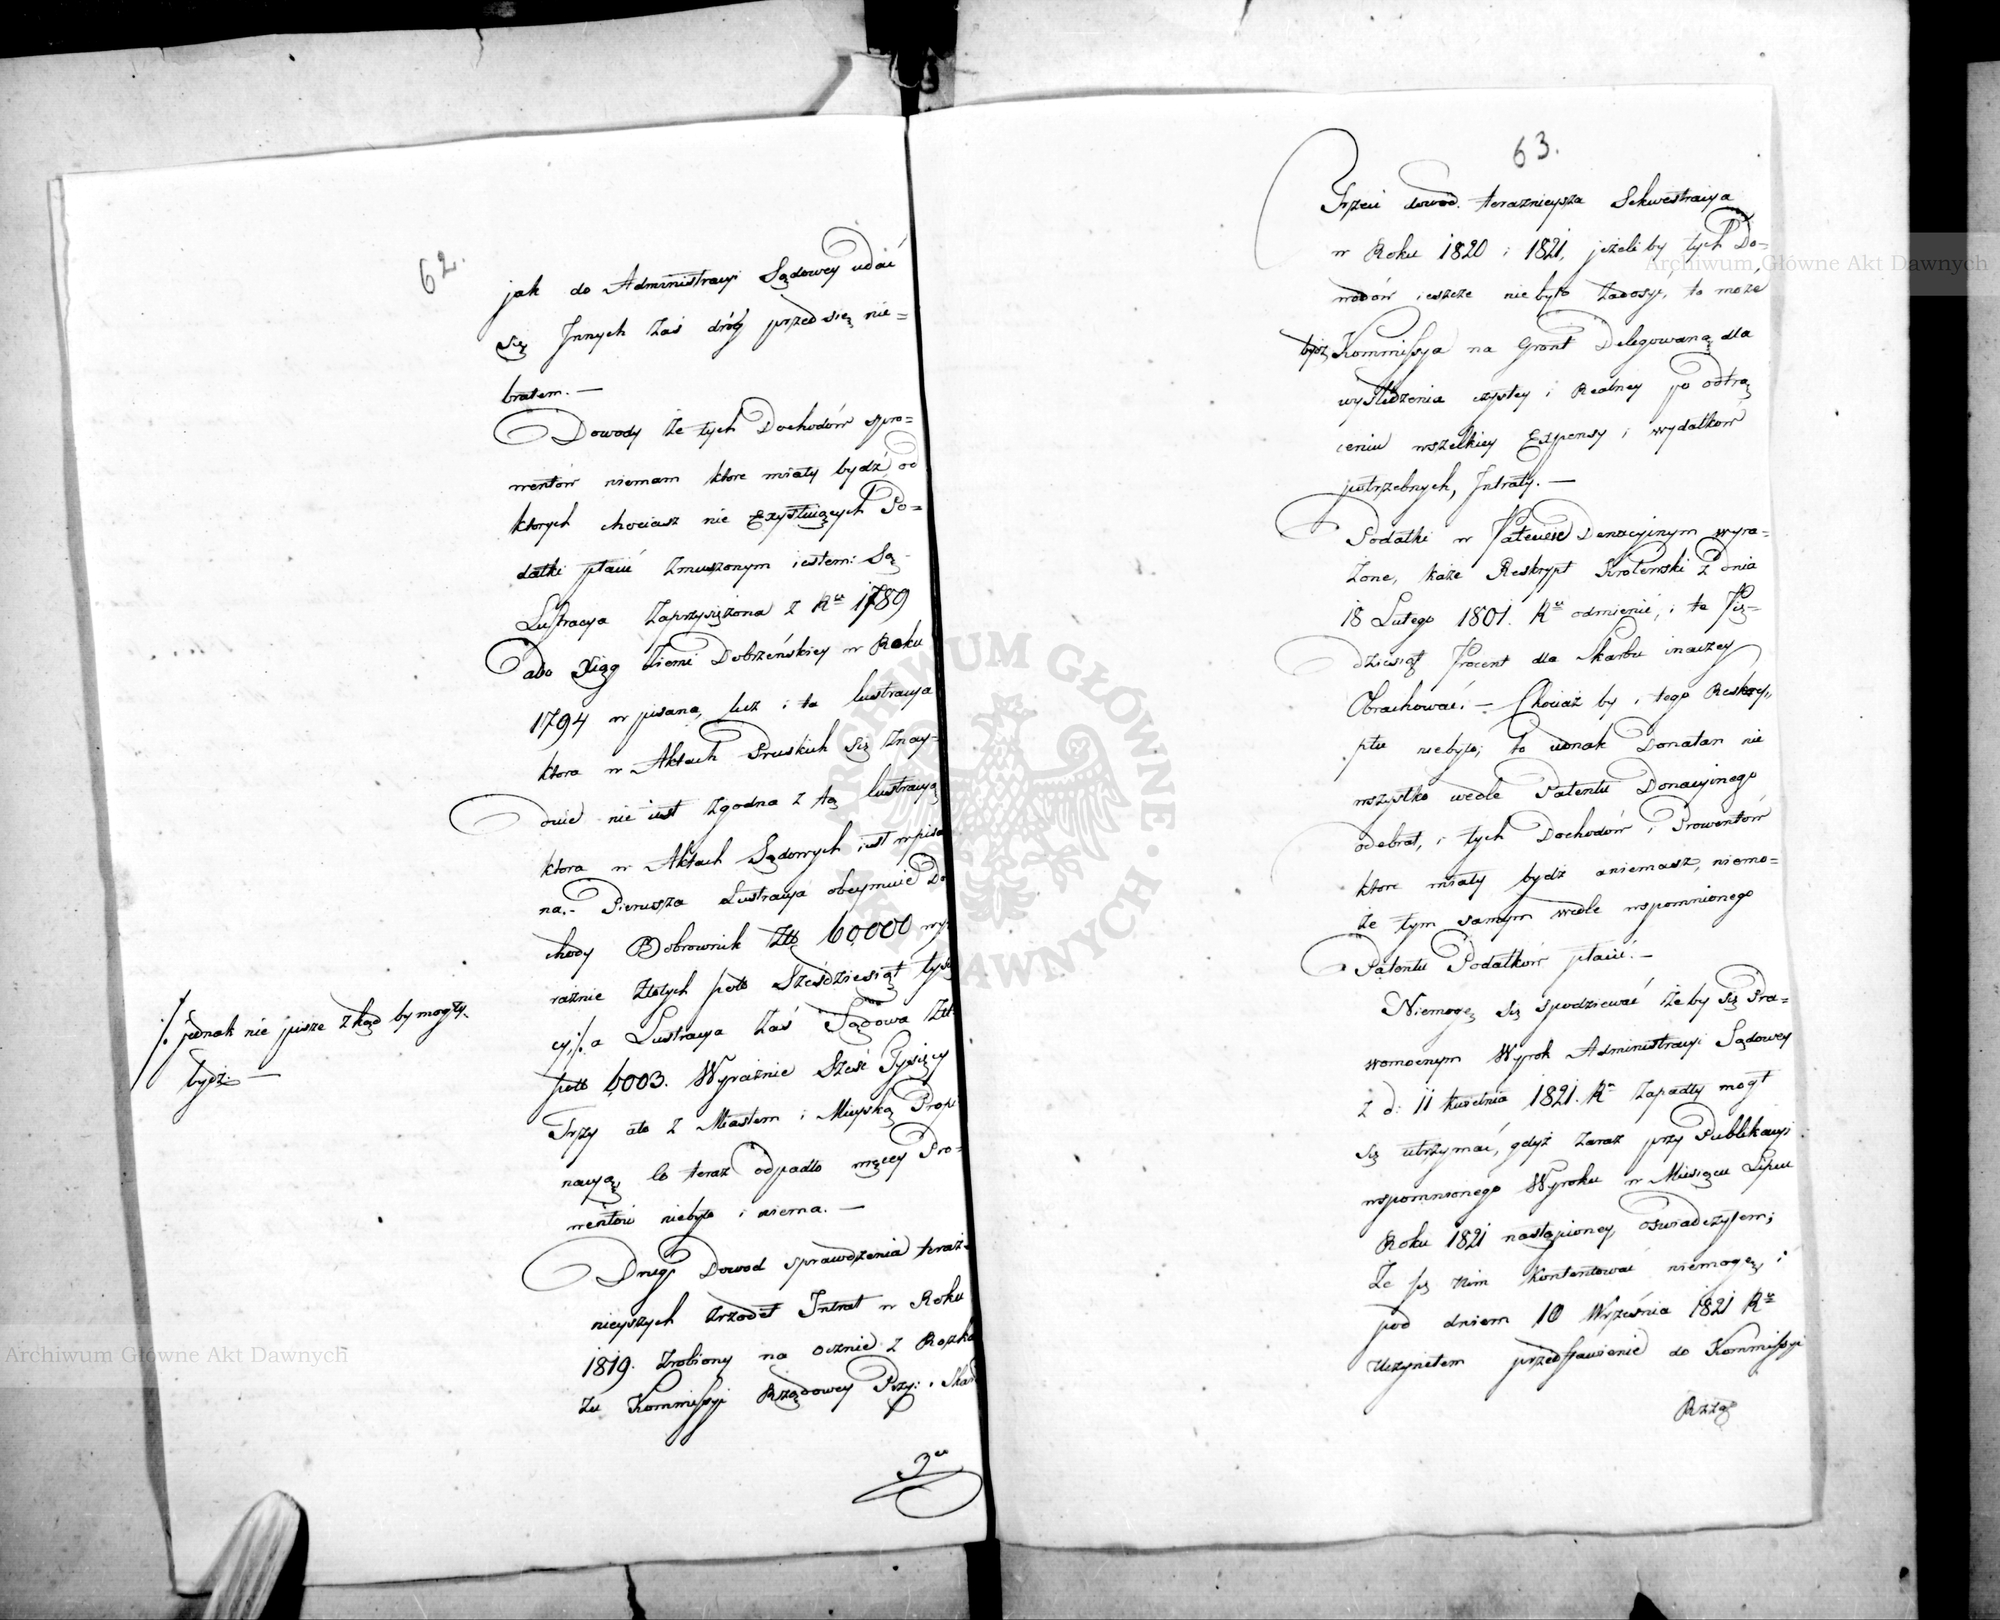 62.
jak do Administracyi Sądowey udać
się Innych zaś dróg przed się nie=
brałem. —
Dowody że tych Dochodów y pro=
wentów niemam które miały bydź od
których chociasz nie Exystuiących Po=
datki płacić zmuszonym iestem: Są
Lustracya zaprzysiężona z Rku 1789
abo Xiąg Ziemi Dobrzeńskiey w Roku
1794 w pisana, lecz i ta lustracya
ktora w Aktach Pruskich się Znay=
duie nie iest zgodna z tą lustracyą
ktora w Aktach Sądowych iest wpisa
na.- Pierwsza Lustracya obeymuie Do
chody Bobrownik Złł 60,000 wy=
raźnie Złotych pols Sześdziesiąt tysię
cy ./. a Lustracya zaś Sądowa Złł
pols 6003. Wyraźnie Sześć Tysięcy
Trzy ale z Miastem i Mieyską Propi
nacyą, co teraz odpadło więcey Pro=
wentów niebyło i niema. —
Drugi Dowod sprawdzenia teraz=
nieyszych zrzodeł Intrat w Roku
1819. zrobiony na ocznie z Rozka
zu Kommissyi Rządowey Przy: i Skar
3ci
./. jednak nie pisze zkąd by mogły
bydź. —
63.
Trzeci dowod. teraznieysza Sekwestracya
w Roku 1820 i 1821, jeżeli by tych Do=
wodów ieszcze nie było Zadosyć, to może
bydź Kommissya na Gront Delegowaną dla
wyśledzenia czystey i Realney po odtrą
ceniu wszelkiey Expensy i wydatkow
potrzebnych, Intraty. —
Podatki w Patencie Donacyinym wyra=
żone, każe Reskrypt Krolewski z Dnia
18 Lutego 1801. Ru odmienić, i te Pię=
dziesiąt Procent dla Skarbu inaczey
Obrachować. — Chociaż by i tego Reskry,,
ptu niebyło, to iednak Donatar nie
wszystko wedle Patentu Donacyinego
odebrał, i tych Dochodów i Prowentów
ktore miały bydź a niemasz, niemo=
że tym samym wedle wspomnionego
Patentu Podatków płacić. —
Niemogę się spodziewać żeby się Pra=
womocnym Wyrok Administracyi Sądowey
z d: 11 Kwietnia 1821. Ru Zapadły mogł
się utrzymać, gdyż zaraz przy Publikacyi
wspomnionego Wyroku w Miesiącu Lipcu
Roku 1821 nastąpioney, oświadczyłem;
Że się nim kontentować niemogę, i
pod dniem 10 Września 1821 Ru
uczyniłem przedstawienie do Kommissyi
Rzzą
Archiwum Główne Akt Dawnych
Archiwum Główne Akt Dawnych
ARCHIWUM GŁÓWNE AKT DAWNYCH